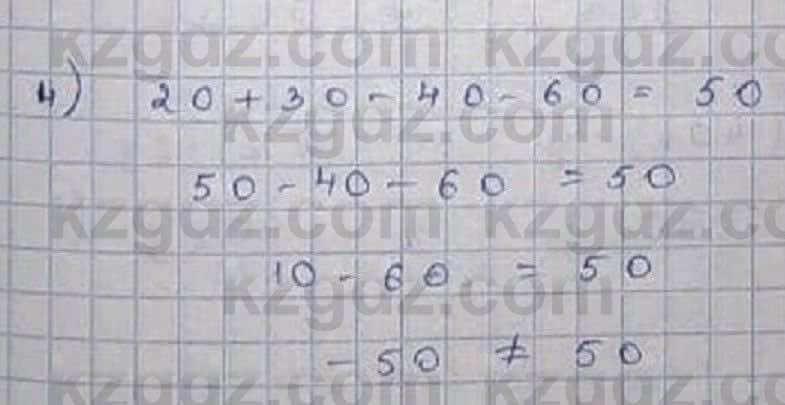 4) 20 + 30 - 40 - 60 = 50
50 - 40 - 60 = 50
10 - 60 = 50
- 50 ≠ 50
kzgdz.com kzgdz.com
kzgdz.com
kzgdz.com kzgdz.com
kzgdz.com
kzgdz.com kzgdz.com